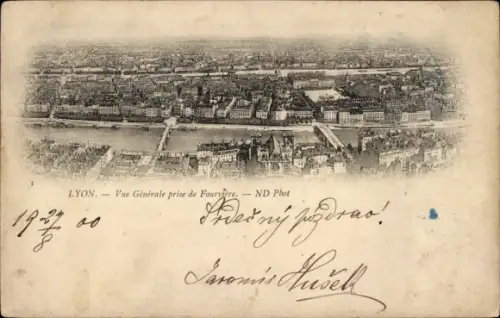 LYON. — Vue Générale prise de Fourvière. — ND Phot
19 29/8 00 Srdečný pozdrav!
Jaromír Hušek